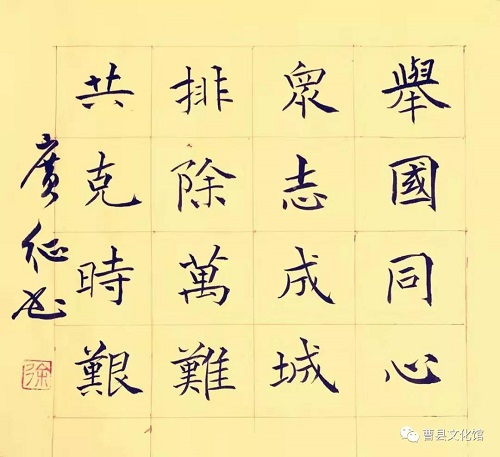 舉國同心
眾志成城
排除萬難
共克時艱
廣征书
徐
曹县文化馆